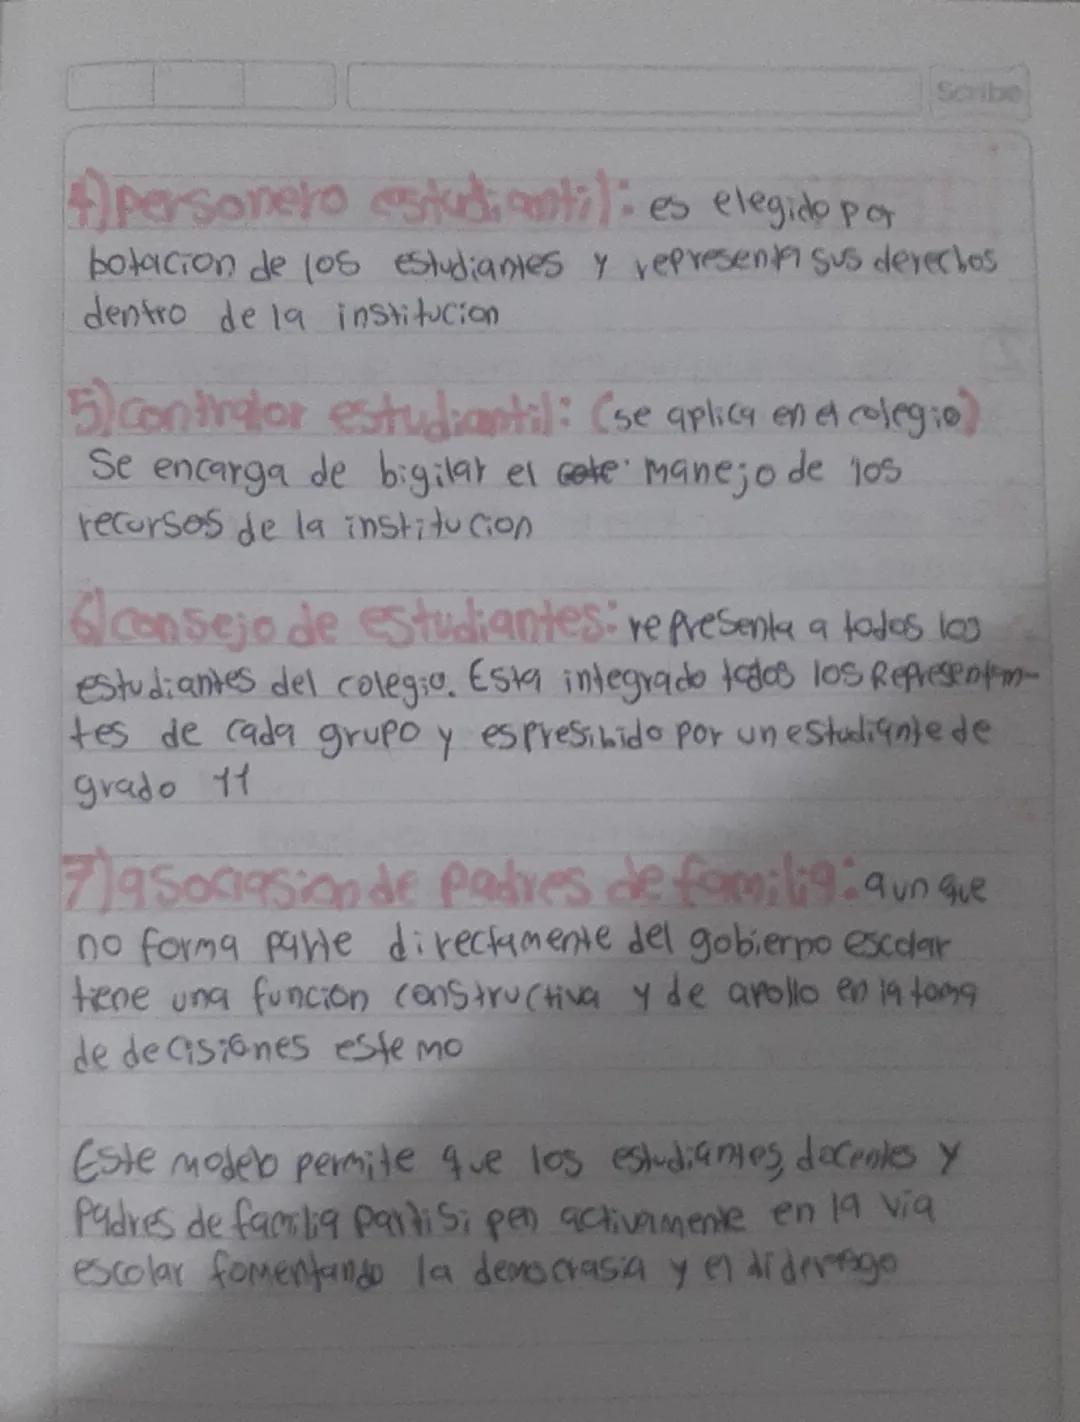 Scribe
4) personero estudiantil: es elegido por
botacion de los estudiantes y representa sus derechos
dentro de la institucion
5) contralor estudiantil: (se aplica en el colegio)
Se encarga de bigilar el manejo de los
recursos de la institucion
6) consejo de estudiantes: representa a todos los
estudiantes del colegio. Esta integrado todos los Representan-
tes de cada grupo y es presibido por un estudiante de
grado 11
7) asociasion de padres de familia: aunque
no forma parte directamente del gobierno escolar
tiene una funcion constructiva y de apollo en la toma
de decisiones este mo
Este modelo permite que los estudiantes, docentes y
Padres de familia partisipen activamente en la via
escolar fomentando la democrasia y el